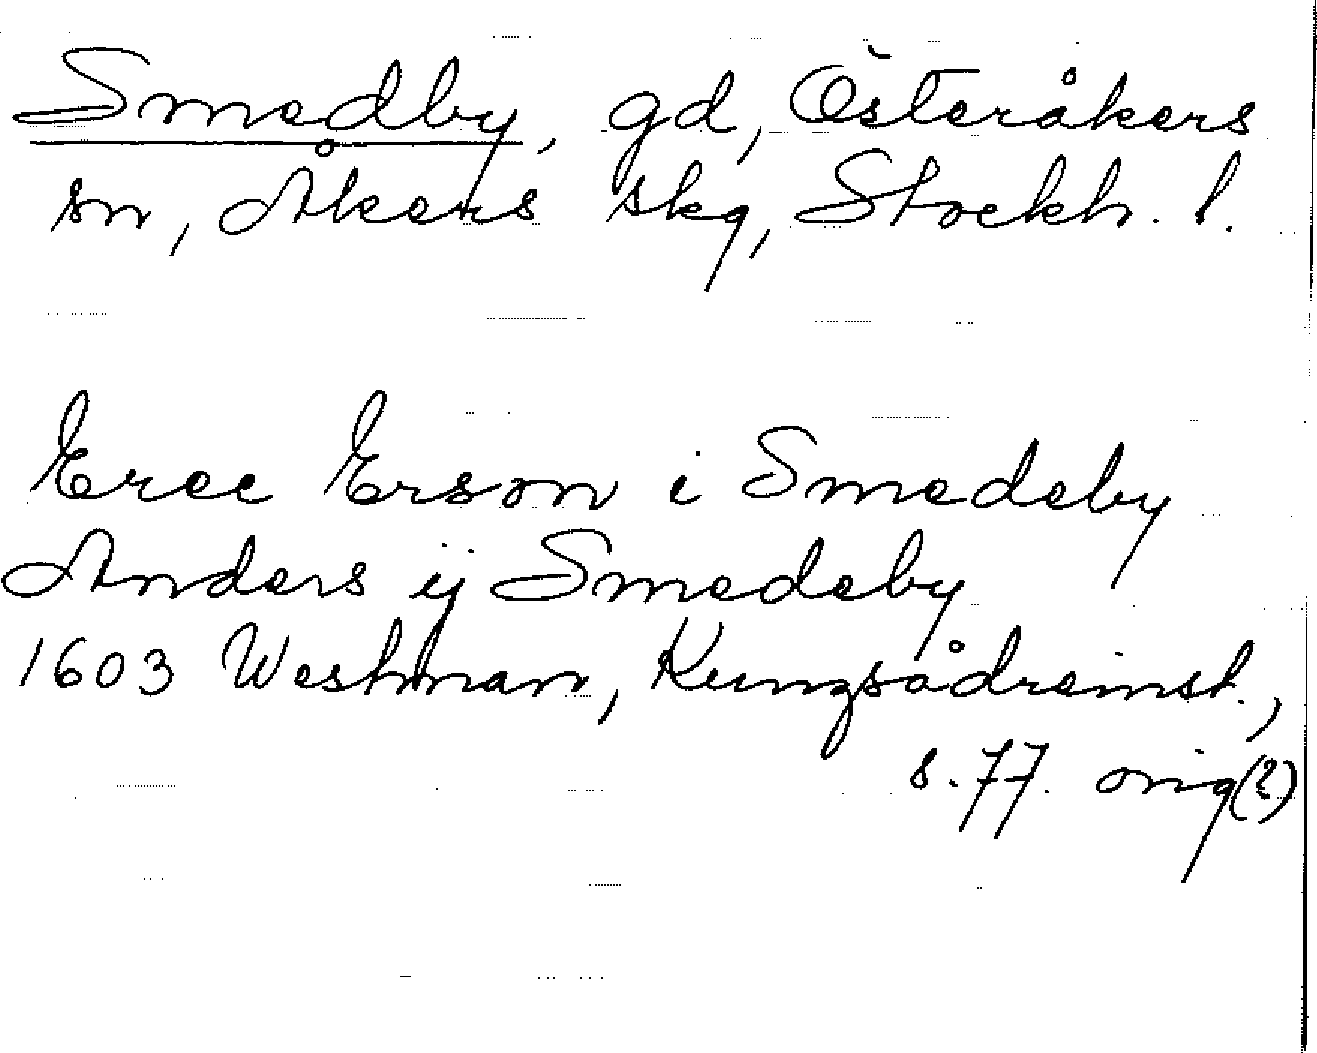 Smedby, gd, Österåkers
sn, Åkers skg, Stockh. l.
Erec Erson i Smedeby
Anders ij Smedeby
1603 Westman, Kungsådreinst.,
s. 77. orig (?)